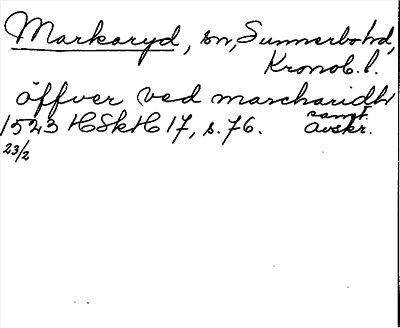 Markaryd, sn, Sunnerbo hd,
Kronob. l.
öffver ved marcharidh
1523 HSkH 17, s. 76. samt. avskr.
23/2